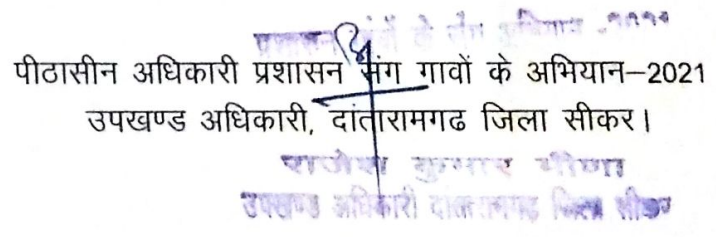 प्रशासन गांवों के संग अभियान -२०२१
पीठासीन अधिकारी प्रशासन संग गावों के अभियान–2021
उपखण्ड अधिकारी, दांतारामगढ जिला सीकर।
राजेश कुमार मीणा
उपखण्ड अधिकारी दांतारामगढ जिला सीकर